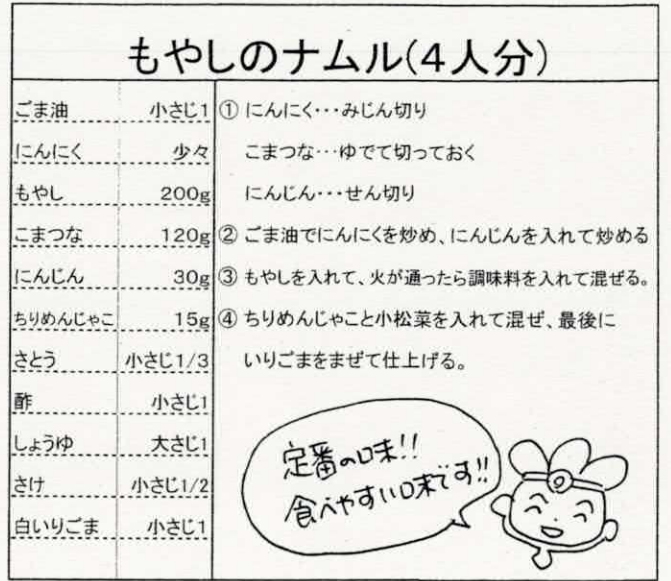 もやしのナムル(4人分)
ごま油 小さじ1
にんにく 少々
もやし 200g
こまつな 120g
にんじん 30g
ちりめんじゃこ 15g
さとう 小さじ1/3
酢 小さじ1
しょうゆ 大さじ1
さけ 小さじ1/2
白いりごま 小さじ1
① にんにく・・・みじん切り
こまつな・・・ゆでて切っておく
にんじん・・・せん切り
② ごま油でにんにくを炒め、にんじんを入れて炒める
③ もやしを入れて、火が通ったら調味料を入れて混ぜる。
④ ちりめんじゃこと小松菜を入れて混ぜ、最後に
いりごまをまぜて仕上げる。
定番の味!!
食べやすい味です!!